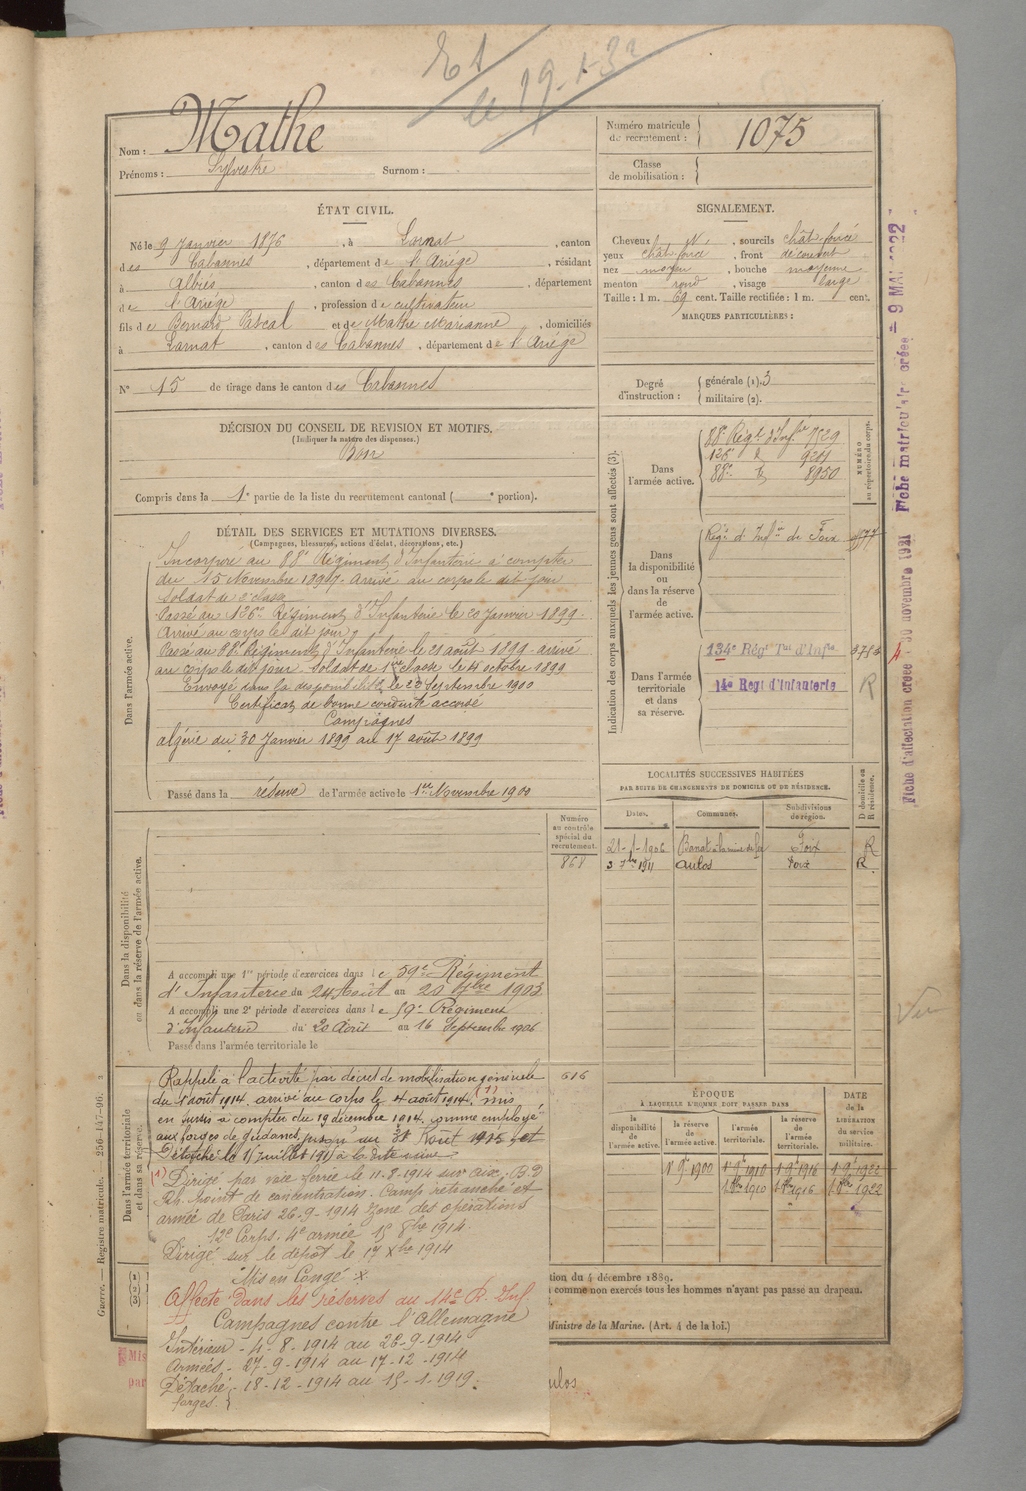 Et
le 19-1-32
Nom : Mathe
Prénoms : Sylvestre Surnom :
Numéro matricule
de recrutement : 1075
Classe
de mobilisation :
ÉTAT CIVIL.
Né le 9 Janvier 1876, à Larnat, canton
des Cabannes, département de l'Ariège, résidant
à Albiès, canton des Cabannes, département
de l'Ariège, profession de cultivateur
fils de Bernard Pascal et de Mathe Marianne, domiciliés
à Larnat, canton des Cabannes, département de l'Ariège
N° 15 de tirage dans le canton des Cabannes
SIGNALEMENT.
Cheveux N, sourcils chât. foncé
yeux chât. foncé, front découvert
nez moyen, bouche moyenne
menton rond, visage large
Taille : 1 m. 69 cent. Taille rectifiée : 1 m. cent.
MARQUES PARTICULIÈRES :
Degré
d'instruction : générale (1). 3
militaire (2).
DÉCISION DU CONSEIL DE REVISION ET MOTIFS.
(Indiquer la nature des dispenses.)
Bon
Compris dans la 1e partie de la liste du recrutement cantonal ( e portion).
DÉTAIL DES SERVICES ET MUTATIONS DIVERSES.
(Campagnes, blessures, actions d'éclat, décorations, etc.)
Dans l'armée active.
Incorporé au 88e Régiment d'Infanterie à compter
du 15 Novembre 1897. Arrivé au corps le dit jour
soldat de 2e classe
Passé au 126e Régiment d'Infanterie le 20 Janvier 1899.
Arrivé au corps le dit jour
Passé au 88e Régiment d'Infanterie le 21 août 1899 arrivé
au corps le dit jour. Soldat de 1ère classe le 4 octobre 1899
Envoyé dans la disponibilité le 23 Septembre 1900
Certificat de bonne conduite accordé
Campagnes
algérie du 30 Janvier 1899 au 17 août 1899
Passé dans la réserve de l'armée active le 1er Novembre 1900
Indication des corps auxquels les jeunes gens sont affectés (3).
NUMÉRO
au répertoire du corps.
Dans
l'armée active.
88e Régt d'Infie 7529
126e d° 9201
88e d° 8950
Dans
la disponibilité
ou
dans la réserve
de l'armée active.
Régt d'Infie de Foix
Dans l'armée
territoriale
et dans
sa réserve.
134e Régt Tal d'Infie
14e Regt d'Infanterie R
LOCALITÉS SUCCESSIVES HABITÉES
PAR SUITE DE CHANGEMENTS DE DOMICILE OU DE RÉSIDENCE.
Dates. Communes. Subdivisions
de région. D domicile ou
R résidence.
21-1-1906 Banat Foix R
3 7bre 1911 Aulos Foix R
Dans la disponibilité
ou dans la réserve de l'armée active.
Numéro
au contrôle
spécial du
recrutement.
868
A accompli une 1re période d'exercices dans le 59e Régiment
d'Infanterie du 24 Août au 20 7bre 1903
A accompli une 2e période d'exercices dans le 59e Régiment
d'Infanterie du 20 Août au 16 Septembre 1906
Passé dans l'armée territoriale le
Dans l'armée territoriale
et dans sa réserve.
616
Rappelé à l'activité par décret de mobilisation générale
du 1 août 1914. arrivé au corps le 4 août 1914. (1) mis
en sursis à compter du 19 décembre 1914. comme employé
aux forges de Gudanes, jusqu'au 31 Août 1915 et
Détaché le 15 juillet 191 à la dite usine
(1) Dirigé par voie ferrée le 11-8-1914 sur Aix. B.D
Rh. point de concentration. Camp retranché et
armée de Paris 26-9-1914 zone des opérations
12e Corps. 4e armée 15 8bre 1914.
Dirigé sur le dépôt le 17 Xbre 1914
Mis en Congé x
Affecté dans les réserves au 14e R. Inf.
Campagnes contre l'Allemagne
Intérieur - 4-8-1914 au 26-9-1914
Armées - 27-9-1914 au 17-12-1914
Détaché - 18-12-1914 au 15-1-1919.
forges.
ÉPOQUE
À LAQUELLE L'HOMME DOIT PASSER DANS
la
disponibilité
de
l'armée active.
la réserve
de
l'armée active.
l'armée
territoriale.
la réserve
de
l'armée
territoriale.
DATE
de la
LIBÉRATION
du service
militaire.
1er 9bre 1900 1er 9bre 1910 1er 9bre 1916 1er 9bre 1922
1 8bre 1910 1 8bre 1916 1 8bre 1922
tion du 4 décembre 1889.
comme non exercés tous les hommes n'ayant pas passé au drapeau.
Ministre de la Marine. (Art. 4 de la loi.)
Mis
par
ulos
Guerre. — Registre matricule. 256-147-96.
Fiche d'affectation créée 30 novembre 1921
Fiche matriculaire créée = 9 MAI 1922
Vu